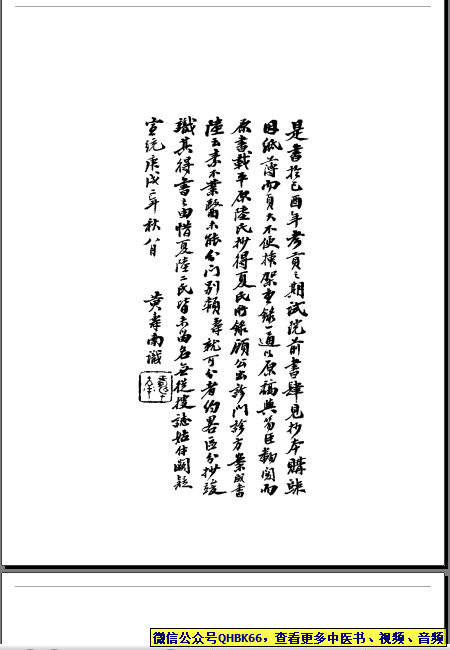 是書於己酉年考貢之期試院前書肆見抄本購歸
因紙薄而頁大不便檢閱重錄一通以原稿與勞臣勷閱而
原書載平原陸氏抄得夏氏所錄顧公出診門診方案成書
陸云素不業醫未能分門別類尋就可分者約畧區分抄竣
識其得書之由惜夏陸二氏皆未留名無從搜誌姑付闕疑
宣統庚戌二年秋八月 黃壽南識
微信公众号QHBK66，查看更多中医书、视频、音频